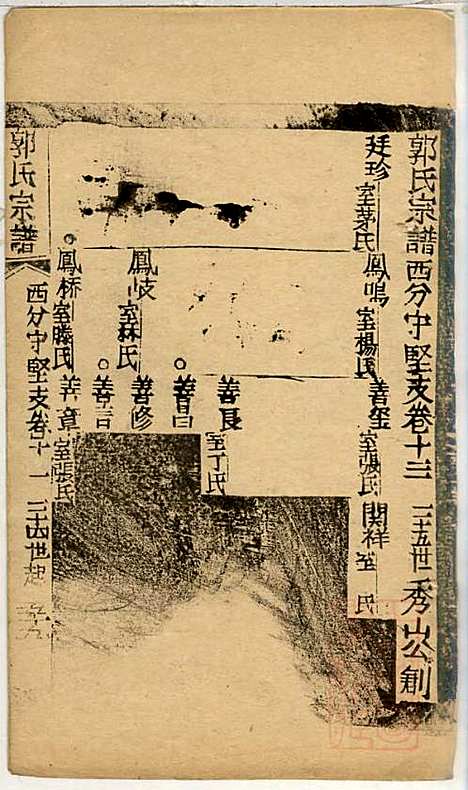 郭氏宗譜西分守堅支卷十三 二十五世 秀公創
廷珍 室茅氏 鳳鳴 室楊氏 善璽 室張氏 開祥 室 氏
善長 室丁氏
善昌
鳳岐 室林氏 善修
善言
鳳橋 室滕氏 善章 室張氏
郭氏宗譜 西分守堅支卷十 二十四世起